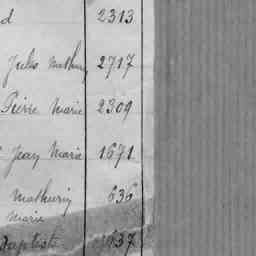 d 2313
Jules Mathurin 2717
Pierre Marie 2309
Jean Marie 1671
Mathurin 636
Marie
Baptiste 637